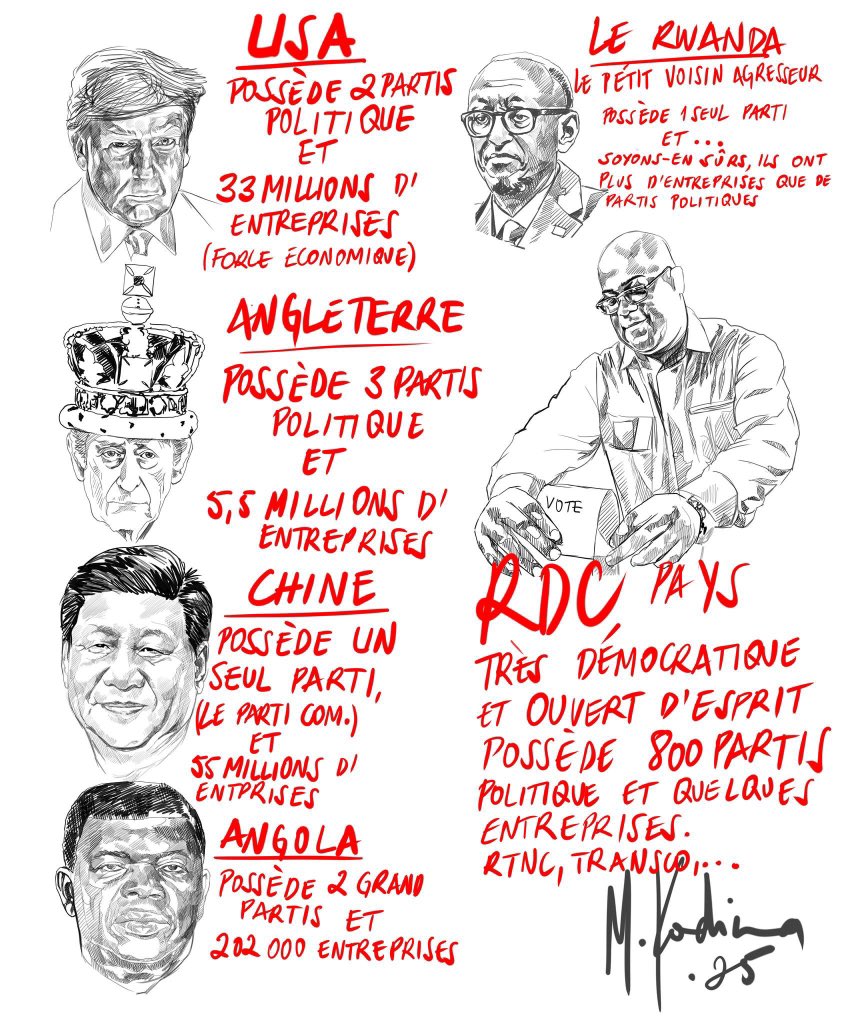 USA
POSSÈDE 2 PARTIS
POLITIQUE
ET
33 MILLIONS D'
ENTREPRISES
(FORCE ÉCONOMIQUE)
ANGLETERRE
POSSÈDE 3 PARTIS
POLITIQUE
ET
5,5 MILLIONS D'
ENTREPRISES
CHINE
POSSÈDE UN
SEUL PARTI,
(LE PARTI COM.)
ET
55 MILLIONS D'
ENTPRISES
ANGOLA
POSSÈDE 2 GRAND
PARTIS ET
202 000 ENTREPRISES
LE RWANDA
LE PETIT VOISIN AGRESSEUR
POSSÈDE 1 SEUL PARTI
ET...
SOYONS-EN SÛRS, ILS ONT
PLUS D'ENTREPRISES QUE DE
PARTIS POLITIQUES
VOTE
RDC PAYS
TRÈS DÉMOCRATIQUE
ET OUVERT D'ESPRIT
POSSÈDE 800 PARTIS
POLITIQUE ET QUELQUES
ENTREPRISES.
RTNC, TRANSCO,...
M. Kodima
.25